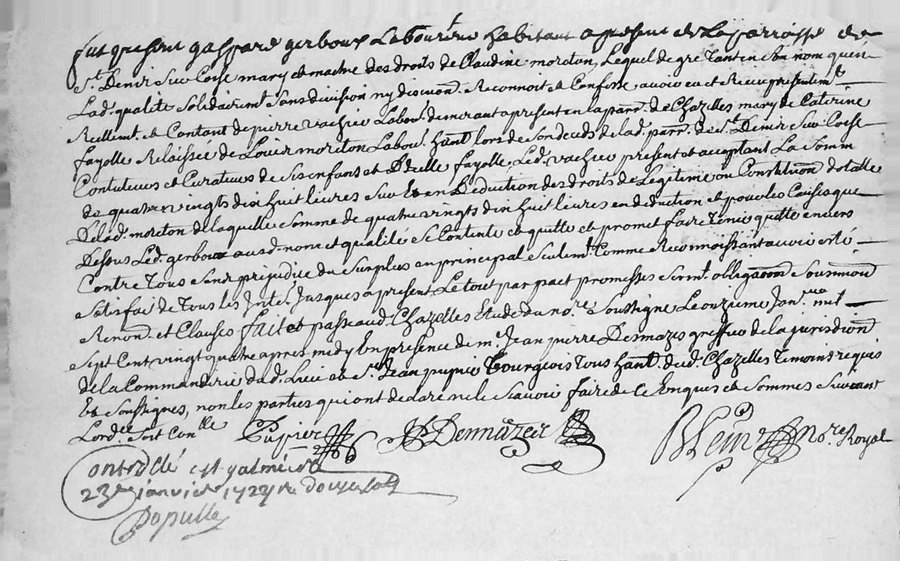 fut present gaspard gerboux Laboureur habitant apresent de La parroisse de
St. Denis Sur Coise mary et maitre des droits de Claudine moreton, Lequel de gre Tant en Son nom quen
Lad. qualite Solidairemt. Sans division ny discuon. Reconnoit et Confesse avoir eu et Receu presentemt.
Reellemt. et Contant de pierre vachez Labour. demeurant apresent en la parr. de Chazelles mary de Caterine
fayolles Relaissée de Louis moreton Labour. hant. lors de Son deceds de lad. parr. de St. Denis Sur Coise
Contuteurs et Curateurs de Ses enfans et Delle fayolle Led. vachez present et acceptant La Somme
de quatre vingts dix huit livres Sur Et en Deduction des droits de Legitime ou Constitution dotalle
De lad. moreton de laquelle Somme de quatre vingts dix huit livres en deduction et pour les Causes que
Dessus Led. gerboux ausd. nom et qualite Se Contente et quitte et promet faire Tenir quitte envers
Contre Tous Sans prejudice du Surplus en principal Seulemt. Comme Reconnoissant avoir esté
Satisfait de Tous les Intes. Jusques apresent Le tout par pact promesses Sermt. obligation Soumission
Renond. et Clauses fait et passé aud. Chazelles Etude du nore. Soussigne Le onzieme Janv. mil
Sept Cent vingt quatre apres midy En presence de me. Jean pierre Desmazes greffier de la jurisdiction
de la Commanderie dud. Lieu et Sr. Jean pupier Bourgeois Tous hant. dud. Chazelles Temoins requis
Et Soussignes, non les parties qui ont declare ne le Scavoir faire de Ce Enquis et Sommes Suivant
Lordce. Soit Conlle
Pupier Desmazes nore. Royal
Controllé a St galmier le
23me janvier 1724 Re douze sols
Populle